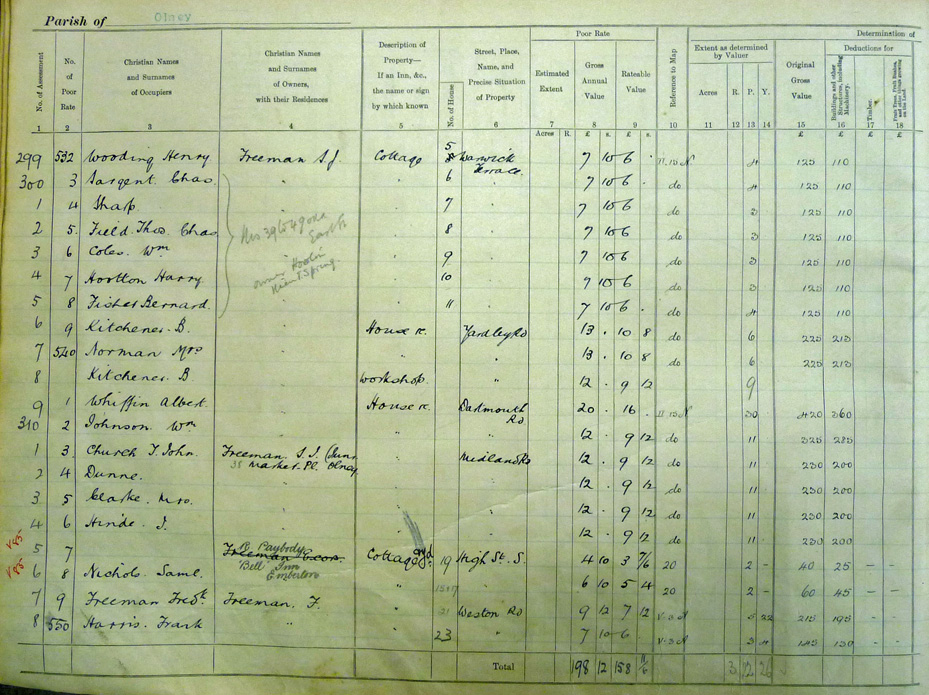 Parish of Olney
No. of Assessment
No. of Poor Rate
Christian Names and Surnames of Occupiers
Christian Names and Surnames of Owners, with their Residences
Description of Property— If an Inn, &c., the name or sign by which known
No. of House
Street, Place, Name, and Precise Situation of Property
Poor Rate
Estimated Extent
Gross Annual Value
Rateable Value
Reference to Map
Extent as determined by Valuer
Acres R. P. Y.
Determination of
Original Gross Value
Deductions for
Buildings and other Structures, including Machinery.
Timber.
1 2 3 4 5 6 7 8 9 10 11 12 13 14 15 16 17 18
Acres R. £ s. £ s. £ £ £ £
299 532 Wooding Henry Freeman S.J. Cottage 5 Warwick Terrace 7 10 6 . 11.15 N 4 125 110
300 3 Sargent Chas " " 6 " 7 10 6 . do 4 125 110
1 4 Sharp " 7 " 7 10 6 do 3 125 110
2 5 Field Thos. Chas " 8 " 7 10 6 do 3 125 110
3 6 Coles Wm " 9 " 7 10 6 do 3 125 110
4 7 Hootton Harry " 10 " 7 10 6 do 3 125 110
5 8 Fisher Bernard " 11 " 7 10 6 . do 4 125 110
6 9 Kitchener B. " House &c. Yardley Rd 13 . 10 8 do 6 225 213
7 540 Norman Mrs " " " 13 . 10 8 do 6 225 213
8 Kitchener B " workshop " 12 . 9 12 9
9 1 Whiffin Albert " House &c. Dartmouth Rd 20 . 16 . 11.15 N 30 420 360
310 2 Johnson Wm " " " 12 . 9 12 do 11 325 285
1 3 Church T. John Freeman S.J. (Junr " Midland Rd 12 . 9 12 do 11 230 200
35 Market Pl. Olney
2 4 Dunne. " " 12 . 9 12 do 11 230 200
3 5 Clarke Mrs " " 12 . 9 12 do 11 230 200
4 6 Hinde J. " " 12 . 9 12 do 11 230 200
V.85 5 7 Freeman Exors. Cottage 19 High St. S. 4 10 3 7/6 20 2 - 40 25 - -
Paybody
Bell Inn
Emberton
V.85 6 8 Nichols Saml. " " 6 10 5 4 20 2 - 60 45 - -
7 9 Freeman Fredk Freeman F. " 21 Weston Rd 9 12 7 12 V.3 N 3 22 215 195 - -
8 550 Harris Frank " " 23 " 7 10 6 . V.3 N 3 4 145 130 - -
Total 198 12 158 11/6 3 12 26